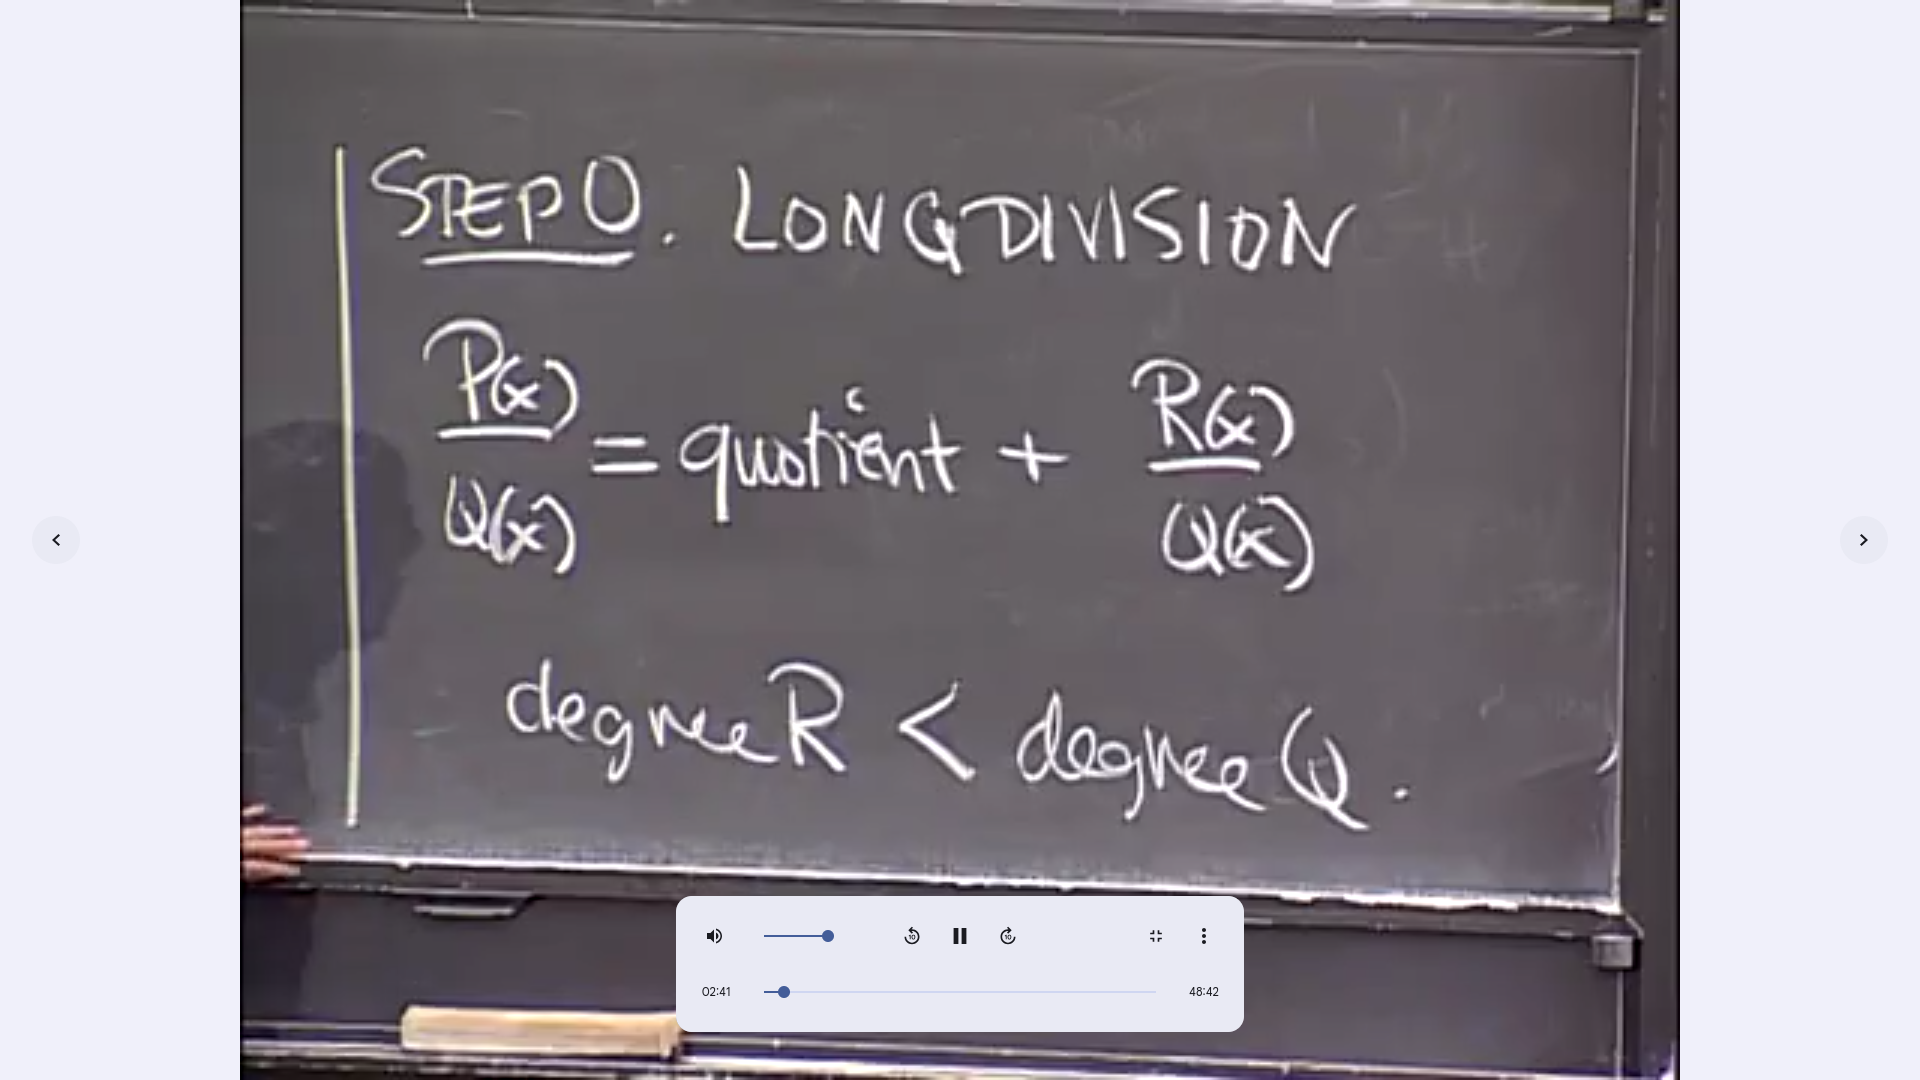 STEP 0. LONG DIVISION
P(x)/Q(x) = quotient + R(x)/Q(x)
degree R < degree Q.
02:41 48:42